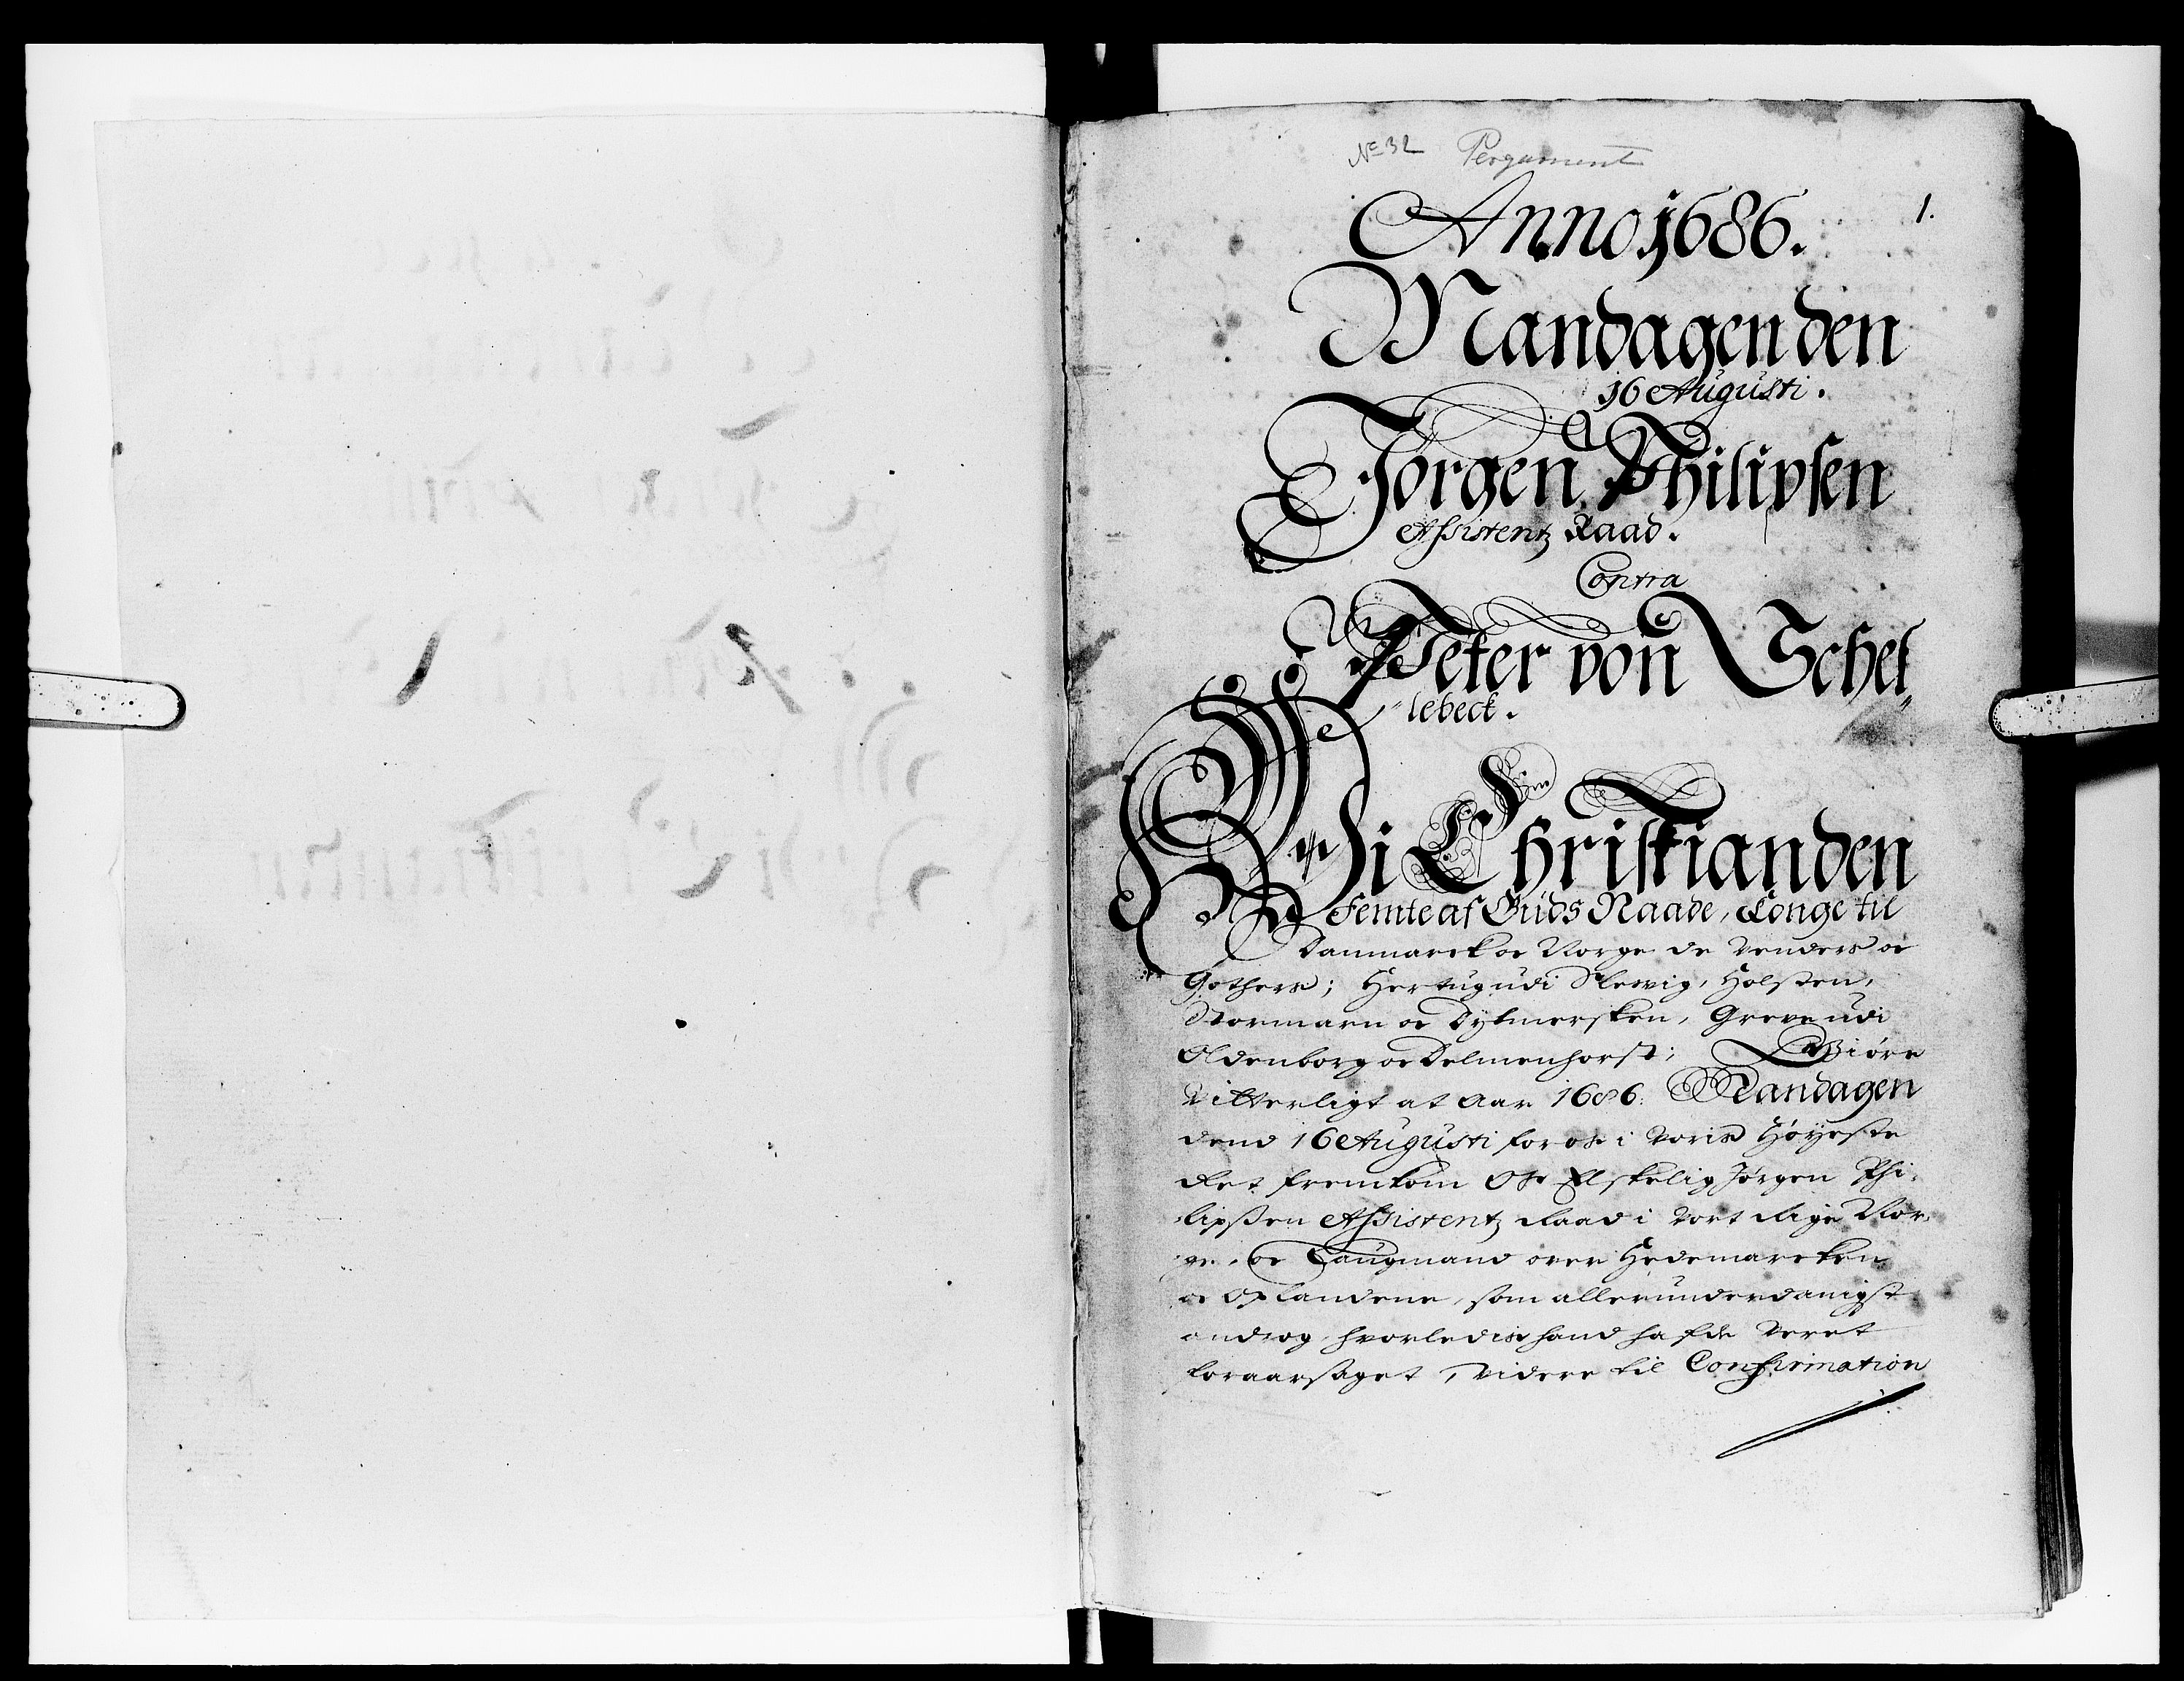 No 32 Pergament
1.
Anno 1686.
Mandagen den
16 Augusti.
Jörgen Philipsen
Assistentz Raad.
Contra
Peter von Schel„
„lebeck.
Wi Christian den
Femte af Guds Naade, Konge til
Danmarck oc Norge de Venders oc
Gothers; Hertug udi Slesvig, Holsten,
Stormarn oc Dytmersken, Greve udi
Oldenborg oc Delmenhorst; Giöre
Vitterligt at Aar 1686. Mandagen
dend 16 Augusti for os i Voris Höyeste
Ret fremkom Os Elskelig Jörgen Phi-
lipsen Assistentz Raad i Vort Rige Nor-
ge, oc Laugmand over Hedemarcken
oc Oplandene, som allerunderdanigst
androg hvorledis hand hafde veret
foraarsaget, videre til Confirmation